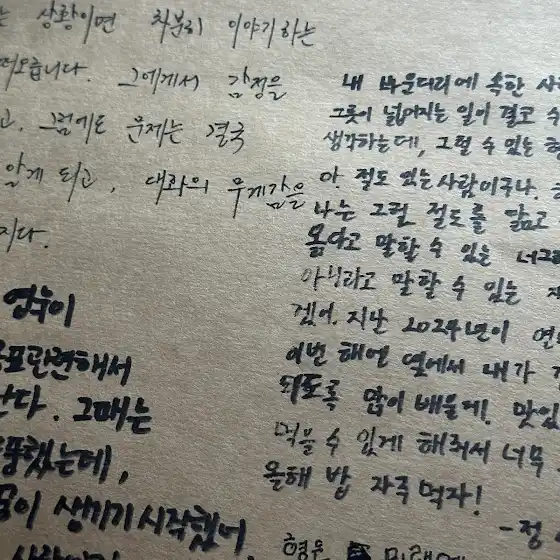 는 상황이면 차분히 이야기하는
떠오릅니다. 그에게서 감정을
고, 그럼에도 문제는 결국
알게 되고, 대화의 무게감을
지다.
영누이
목표관련해서
난다. 그때는
했는데,
이 생기기 시작했어.
내 바운더리에 속한 사
그릇이 넓어지는 일이 결코 수
생각하는데, 그럴 수 있는 혀
아. 절도 있는 사람이구나.
나는 그럴 절도를 닮고
옳다고 말할 수 있는 너그
아니라고 말할 수 있는
겠어. 지난 2024년이
이번 해엔 옆에서 내가
되도록 많이 배울게. 맛있
먹을 수 있게 해줘서 너무
올해 밥 자주 먹자!
-정
형우